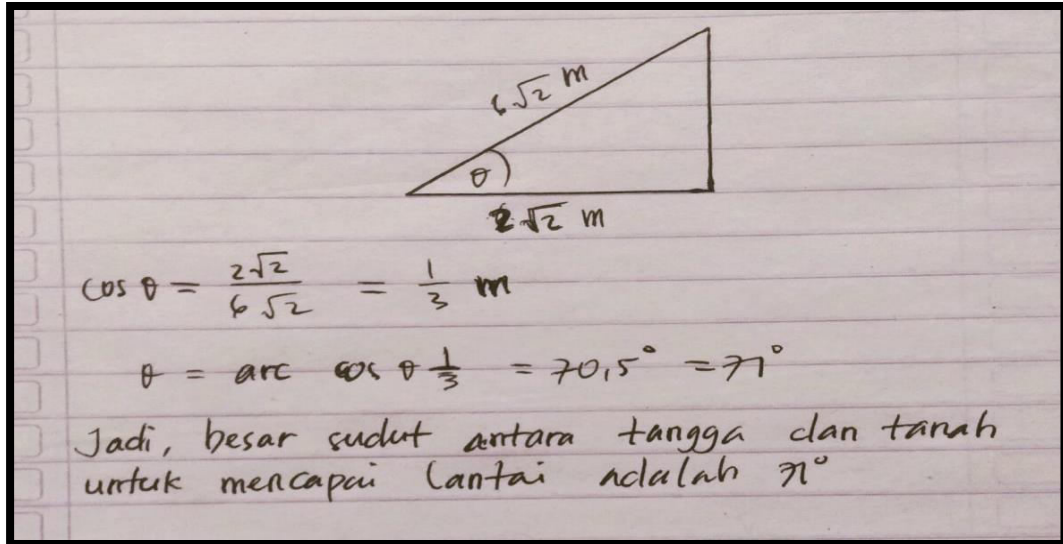 6√2 m
θ
2√2 m
cos θ = 2√2 / 6√2 = 1/3 m
θ = arc cos θ 1/3 = 70,5° = 71°
Jadi, besar sudut antara tangga dan tanah
untuk mencapai lantai adalah 71°